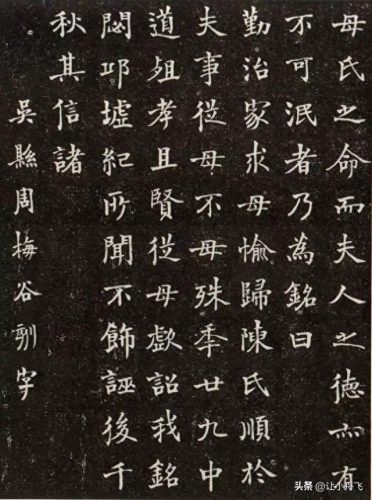 母氏之命而夫人之德亦有
不可泯者乃為銘曰
勤治家求母愉歸陳氏順於
夫事從母不母殊秊廿九中
道殂孝且賢從母歔詔我銘
閟邛墟紀所聞不飾誣後千
秋其信諸
吳縣周梅谷刻字
头条 @让小